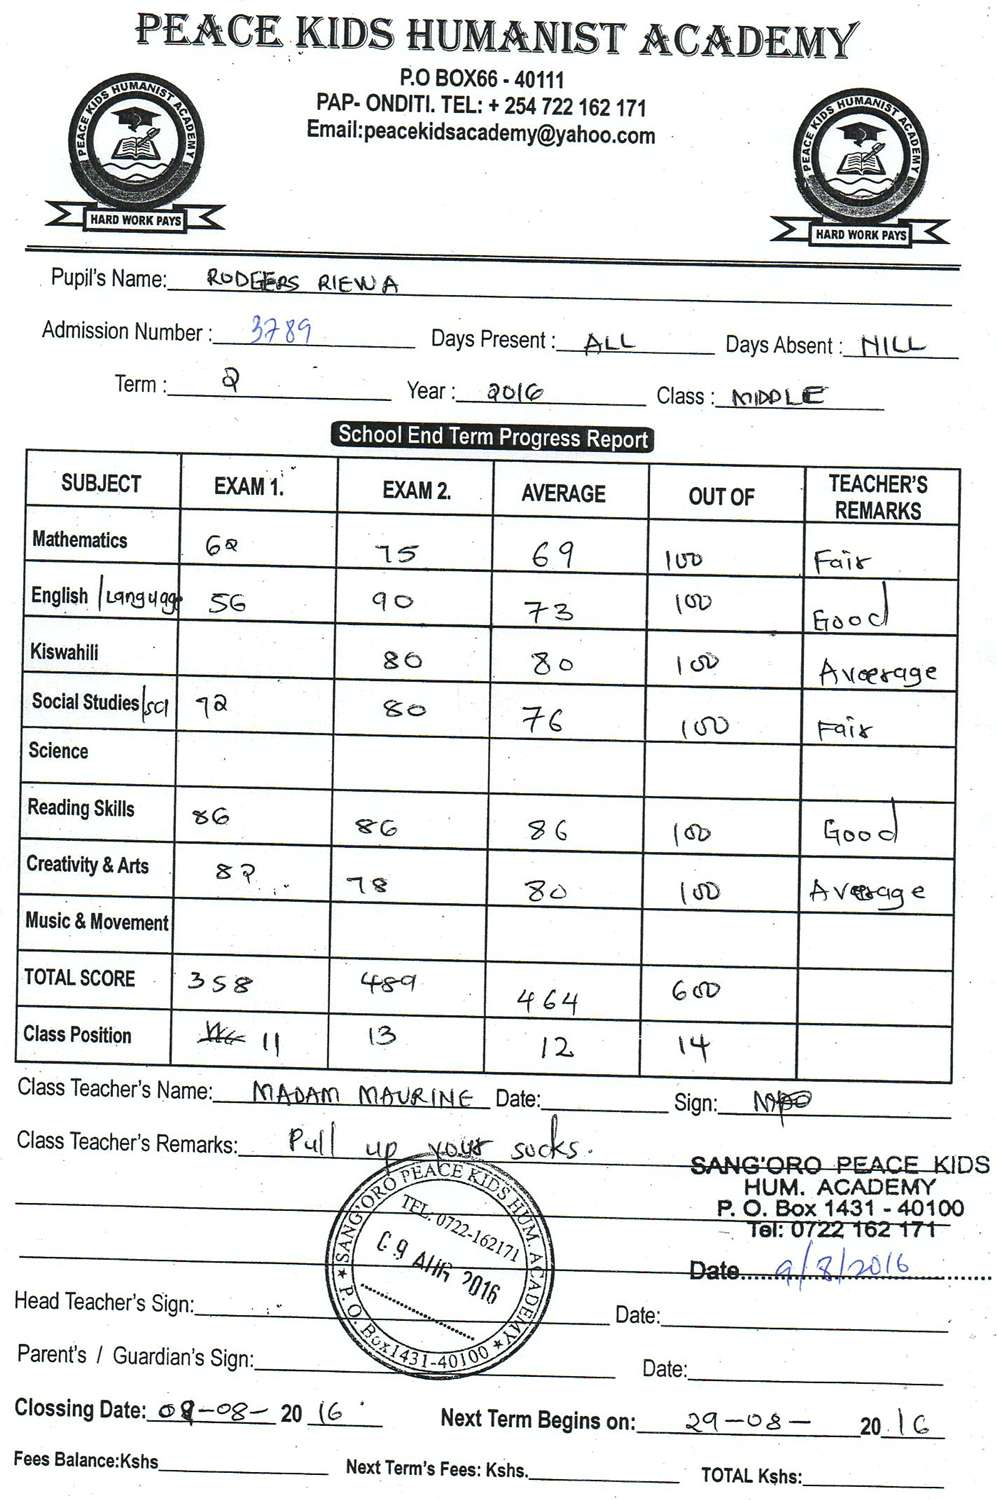 PEACE KIDS HUMANIST ACADEMY
P.O BOX66 - 40111
PAP- ONDITI. TEL: + 254 722 162 171
Email:peacekidsacademy@yahoo.com
PEACE KIDS HUMANIST ACADEMY
HARD WORK PAYS
PEACE KIDS HUMANIST ACADEMY
HARD WORK PAYS
Pupil's Name: RODGERS RIEWA
Admission Number : 3789 Days Present : ALL Days Absent : NILL
Term : 2 Year : 2016 Class : MIDDLE
School End Term Progress Report
SUBJECT EXAM 1. EXAM 2. AVERAGE OUT OF TEACHER'S REMARKS
Mathematics 62 75 69 100 Fair
English /Language 56 90 73 100 Good
Kiswahili 80 80 100 Average
Social Studies/sci 72 80 76 100 Fair
Science
Reading Skills 86 86 86 100 Good
Creativity & Arts 82 78 80 100 Average
Music & Movement
TOTAL SCORE 358 489 464 600
Class Position 11 13 12 14
Class Teacher's Name: MADAM MAURINE Date: Sign:
Class Teacher's Remarks: Pull up your socks.
SANG'ORO PEACE KIDS
HUM. ACADEMY
P. O. Box 1431 - 40100
Tel: 0722 162 171
Date 9/8/2016
SANG'ORO PEACE KIDS HUM. ACADEMY
TEL: 0722-162171
09 AUG 2016
P. O. Box1431-40100
Head Teacher's Sign: Date:
Parent's / Guardian's Sign: Date:
Clossing Date: 09-08- 20 16 Next Term Begins on: 29-08- 20 16
Fees Balance:Kshs Next Term's Fees: Kshs. TOTAL Kshs: